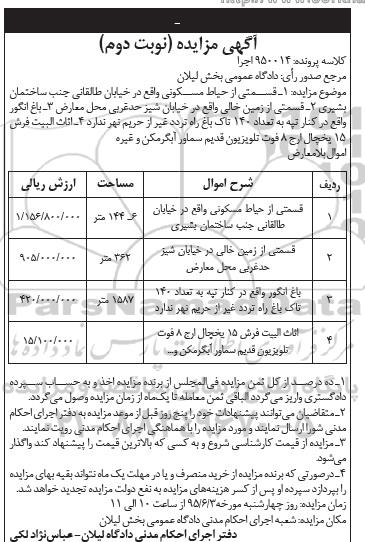 آگهی مزایده (نوبت دوم)
کلاسه پرونده: ۹۵۰۰۱۴ اجرا
مرجع صدور رأی: دادگاه عمومی بخش لیلان
موضوع مزایده: ۱_قسمتی از حیاط مسکونی واقع در خیابان طالقانی جنب ساختمان
بشیری ۲_قسمتی از زمین خالی واقع در خیابان شیز حدغربی محل معارض ۳_باغ انگور
واقع در کنار تپه به تعداد ۱۴۰ تاک باغ راه تردد غیر از حریم نهر ندارد ۴_اثاث البیت فرش
۱۵ یخچال ارج ۸ فوت تلویزیون قدیم سماور آبگرمکن و غیره
اموال بلامعارض
ردیف شرح اموال مساحت ارزش ریالی
۱ قسمتی از حیاط مسکونی واقع در خیابان طالقانی جنب ساختمان بشیری ۶_ ۱۴۴ متر ۱/۱۵۶/۸۰۰/۰۰۰
۲ قسمتی از زمین خالی در خیابان شیز حدغربی محل معارض ۳۶۲ متر ۹۰۵/۰۰۰/۰۰۰
۳ باغ انگور واقع در کنار تپه به تعداد ۱۴۰ تاک باغ راه تردد غیر از حریم نهر ندارد ۱۵۸۷ متر ۴۲۰/۰۰۰/۰۰۰
۴ اثاث البیت فرش ۱۵ یخچال ارج ۸ فوت تلویزیون قدیم سماور آبگرمکن و... ۱۵/۱۰۰/۰۰۰
۱_ده درصد از کل ثمن مزایده فی‌المجلس از برنده مزایده اخذ و به حساب سپرده
دادگستری واریز می‌گردد الباقی ثمن معامله تا یک‌ماه از زمان مزایده وصول می‌گردد.
۲_متقاضیان می‌توانند پیشنهادات خود را پنج روز قبل از موعد مزایده به دفتر اجرای احکام
مدنی شورا ارسال نمایند و مورد مزایده را با هماهنگی اجرای احکام مدنی رویت نمایند.
۳_مزایده از قیمت کارشناسی شروع و به کسی که بالاترین قیمت را پیشنهاد کند واگذار
می‌شود.
۴_درصورتی که برنده مزایده از خرید منصرف و یا در مهلت یک ماه نتواند بقیه بهای مزایده
را بپردازد سپرده او پس از کسر هزینه‌های مزایده به نفع دولت مزایده تجدید خواهد شد.
زمان مزایده: روز چهارشنبه مورخه ۹۵/۶/۳ از ساعت ۱۰ الی ۱۱
مکان مزایده: شعبه اجرای احکام مدنی دادگاه عمومی بخش لیلان
دفتر اجرای احکام مدنی دادگاه لیلان- عباس‌نژاد لکی